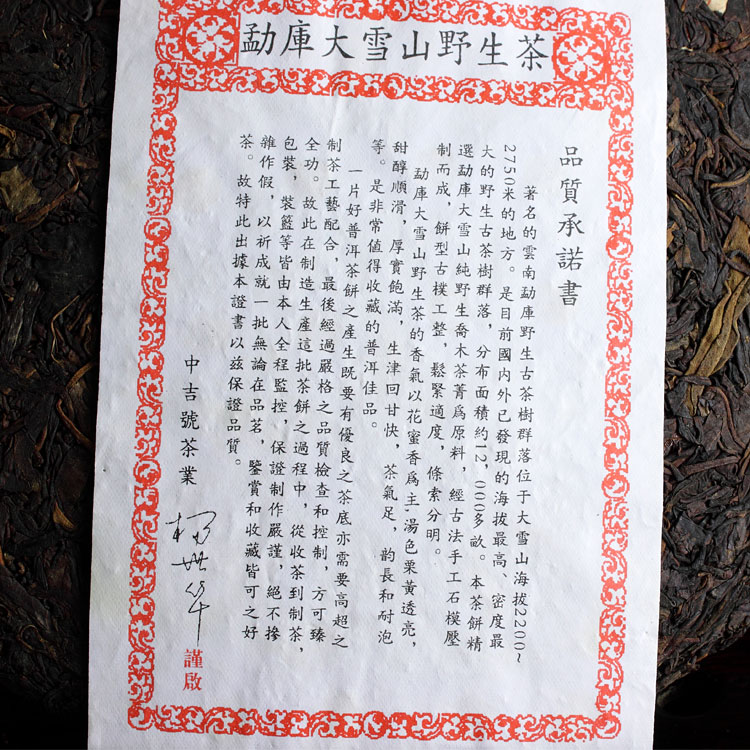 勐庫大雪山野生茶
品質承諾書
著名的雲南勐庫野生古茶樹群落位于大雪山海拔2200~
2750米的地方。是目前國内外已發現的海拔最高、密度最
大的野生古茶樹群落，分布面積約12,000多畝。本茶餅精
選勐庫大雪山純野生喬木茶菁爲原料，經古法手工石模壓
制而成，餅型古樸工整，鬆緊適度，條索分明。
勐庫大雪山野生茶的香氣以花蜜香爲主·湯色栗黃透亮，
甜醇順滑，厚實飽滿，生津回甘快，茶氣足，韵長和耐泡
等。是非常值得收藏的普洱佳品。
一片好普洱茶餅之產生既要有優良之茶底亦需要高超之
制茶工藝配合，最後經過嚴格之品質檢查和控制，方可臻
全功。故此在制造生產這批茶餅之過程中，從收茶到制茶，
包裝，裝籃等皆由本人全程監控，保證制作嚴謹，絕不摻
雜作假，以祈成就一批無論在品茗，鑒賞和收藏皆可之好
茶。故特此出據本證書以兹保證品質。
中吉號茶業
謹啟